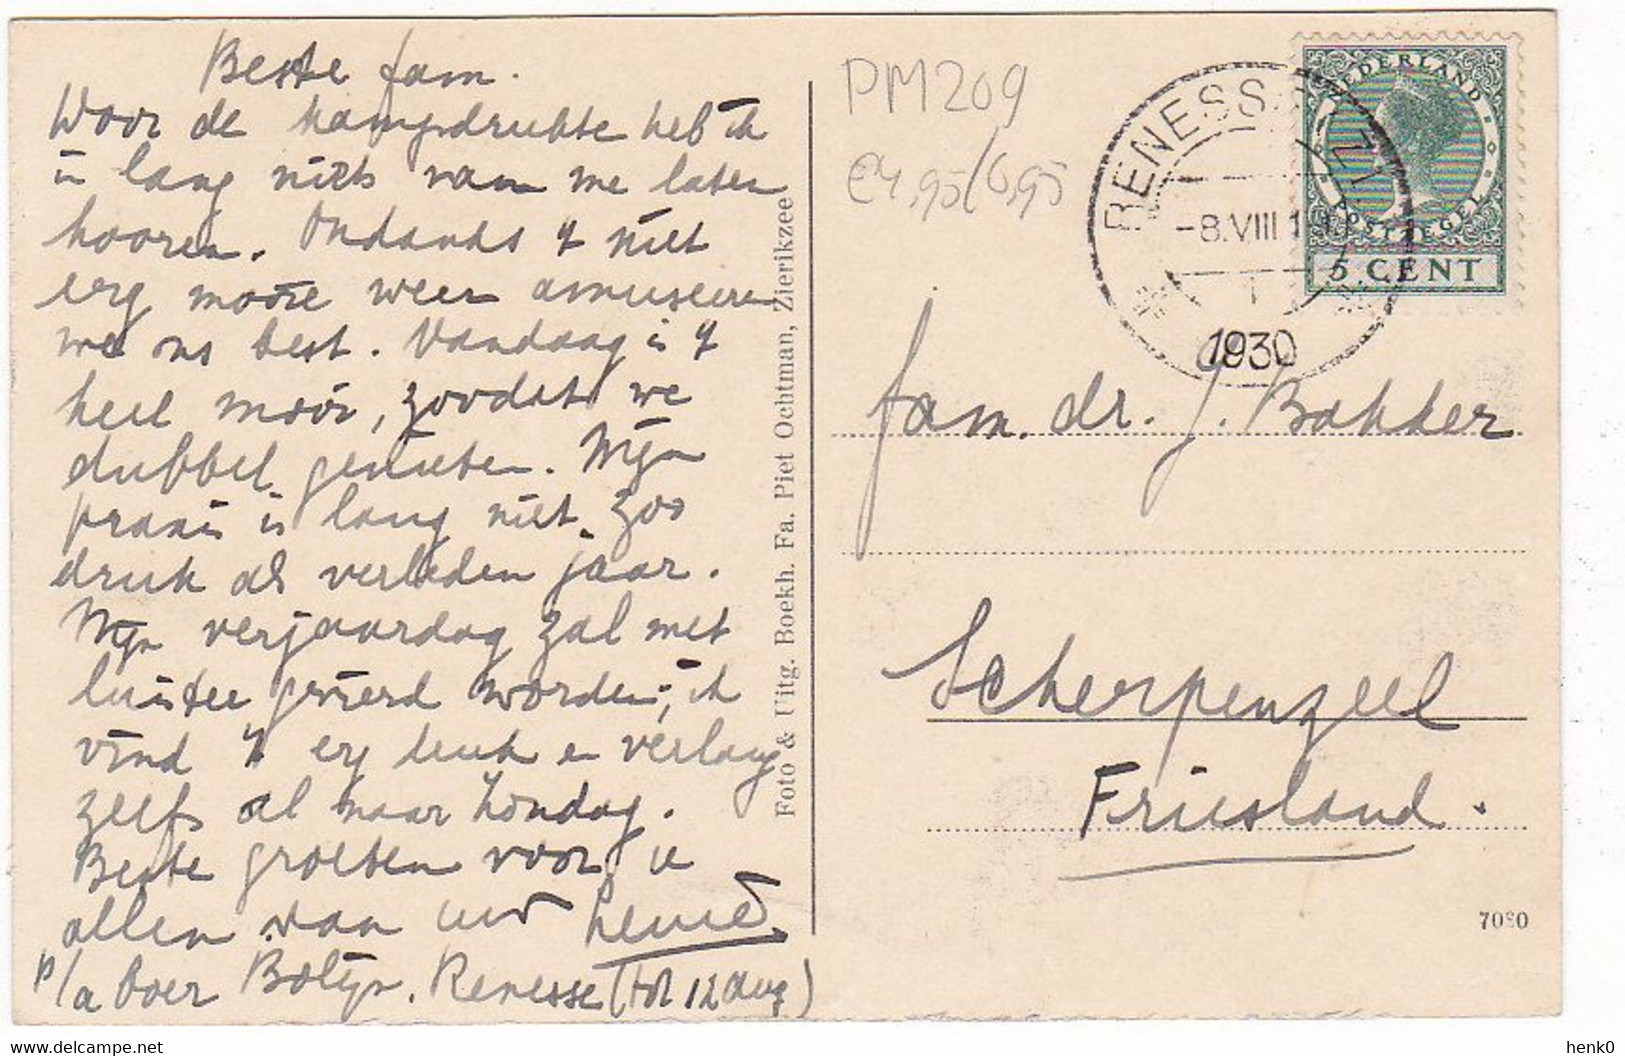 Beste fam.
Door de kampdrukte heb ik
u lang niets van me laten
hooren. Ondanks 't niet
erg mooie weer amuseeren
we ons best. Vandaag is 't
heel mooi, zoodat we
dubbel genieten. Mijn
praxis is lang niet zoo
druk als verleden jaar.
Mijn verjaardag zal met
luister gevierd worden; ik
vind 't erg leuk en verlang
zelfs al naar Zondag.
Beste groeten voor u
allen van uw
p/a boer Bolijn. Renesse (tot 12 aug)
Foto & Uitg. Boekh. Fa. Piet Ochtman, Zierikzee
PM209
€4,95/6,95
RENESSE
-8.VIII 1
1930
NEDERLAND
POSTZEGEL
5 CENT
fam. dr. J. Bakker
Scherpenzeel
Friesland.
7080
henk0